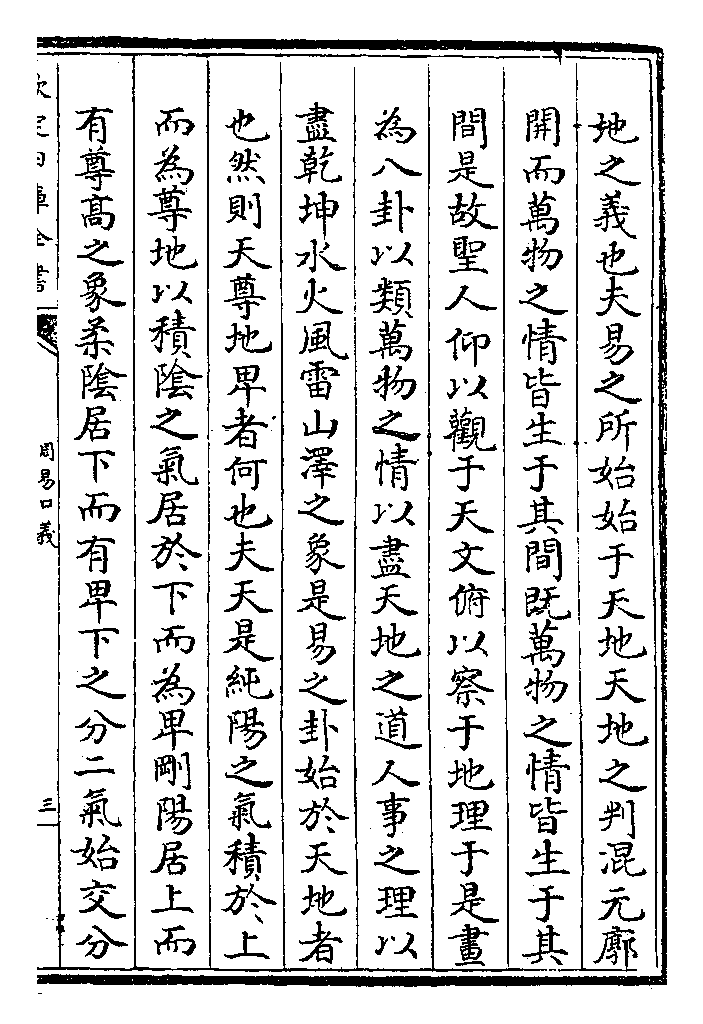 地之義也夫易之所始始于天地天地之判混元廓
開而萬物之情皆生于其間既萬物之情皆生于其
間是故聖人仰以觀于天文俯以察于地理于是畫
為八卦以類萬物之情以盡天地之道人事之理以
盡乾坤水火風雷山澤之象是易之卦始於天地者
也然則天尊地卑者何也夫天是純陽之氣積於上
而為尊地以積陰之氣居於下而為卑剛陽居上而
有尊高之象柔陰居下而有卑下之分二氣始交分
欽定四庫全書
周易口義
三